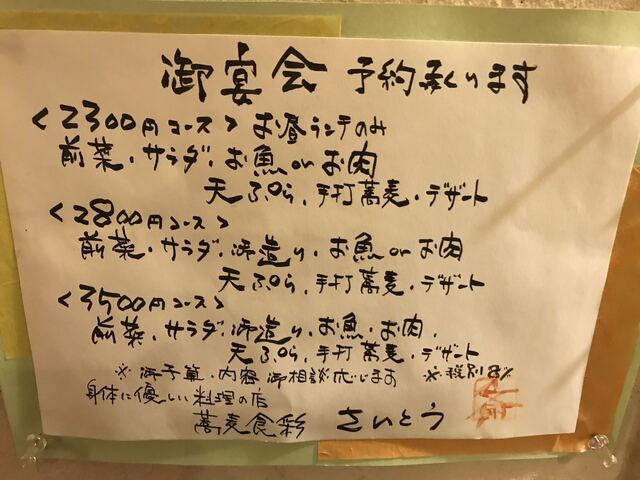 御宴会 予約承ります
<2300円コース> お昼ランチのみ
前菜・サラダ・お魚orお肉
天ぷら、手打蕎麦・デザート
<2800円コース>
前菜・サラダ・御造り・お魚orお肉
天ぷら、手打蕎麦・デザート
<3500円コース>
前菜・サラダ・御造り・お魚・お肉、
天ぷら、手打蕎麦・デザート
※御予算・内容御相談応じます ※税別8%
身体に優しい料理の店
蕎麦食彩 さいとう